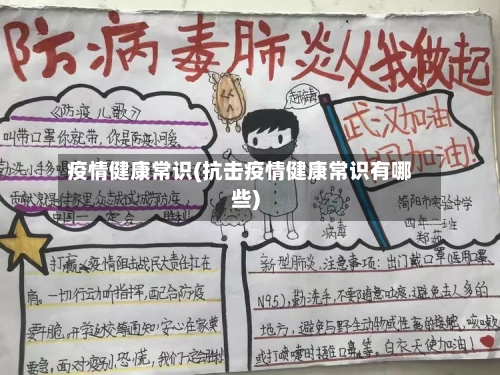 防病毒肺炎从我做起
《防疫儿歌》
叫带口罩你就带,你是防疫小可爱
赶病毒
武汉加油
中国加油!
疫情健康常识(抗击疫情健康常识有哪
些)
简阳市实验中学
四年二班
病毒
打赢疫情阻击战民大责任扛在
肩。一切行动听指挥,配合防疫
要听脆。开学返校编通知安心在家莫
要急,面对疫别恐慌,我们一定
新型肺炎注意事项:出门戴口罩(医用罩
N95),勤洗手,不要随意吐痰,避免去人多的
地方,避免与野生动物或性畜的接触,咳嗽
或打喷嚏时捂口鼻等。白衣天使加油!